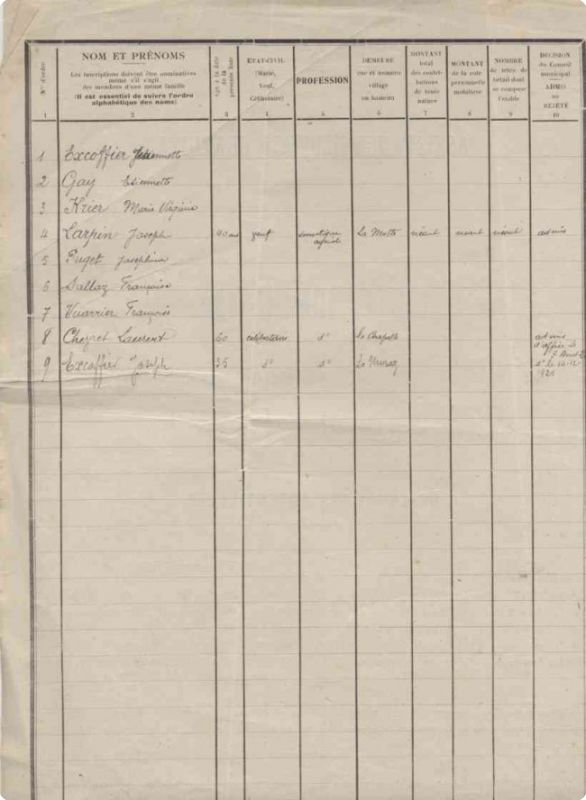 Nos d'ordre
NOM ET PRÉNOMS
Les inscriptions doivent être nominatives
même s'il s'agit
des membres d'une même famille
(Il est essentiel de suivre l'ordre
alphabétique des noms)
AGE à la date
ETAT-CIVIL
(Marié,
Veuf,
Célibataire)
PROFESSION
DEMEURE
rue et numéro
village
ou hameau
MONTANT
total
des contri-
butions
de toute
nature
MONTANT
de la cote
personnelle
mobilière
NOMBRE
de têtes de
bétail dont
se compose
l'étable
DÉCISION
du Conseil
municipal
ADMIS
ou
REJETÉ
1 2 3 4 5 6 7 8 9 10
1 Excoffier
2 Gay Etiennette
3 Krier Marie Virginie
4 Larpin Joseph 40 ans veuf domestique agricole La Motte néant néant néant admis
5 Puget Joséphine
6 Sallaz Françoise
7 Vuarrier François
8 Laurent 60 célibataire d° La Chapelle admis
9 Excoffier Joseph 35 d° d° Le Muraz d° le